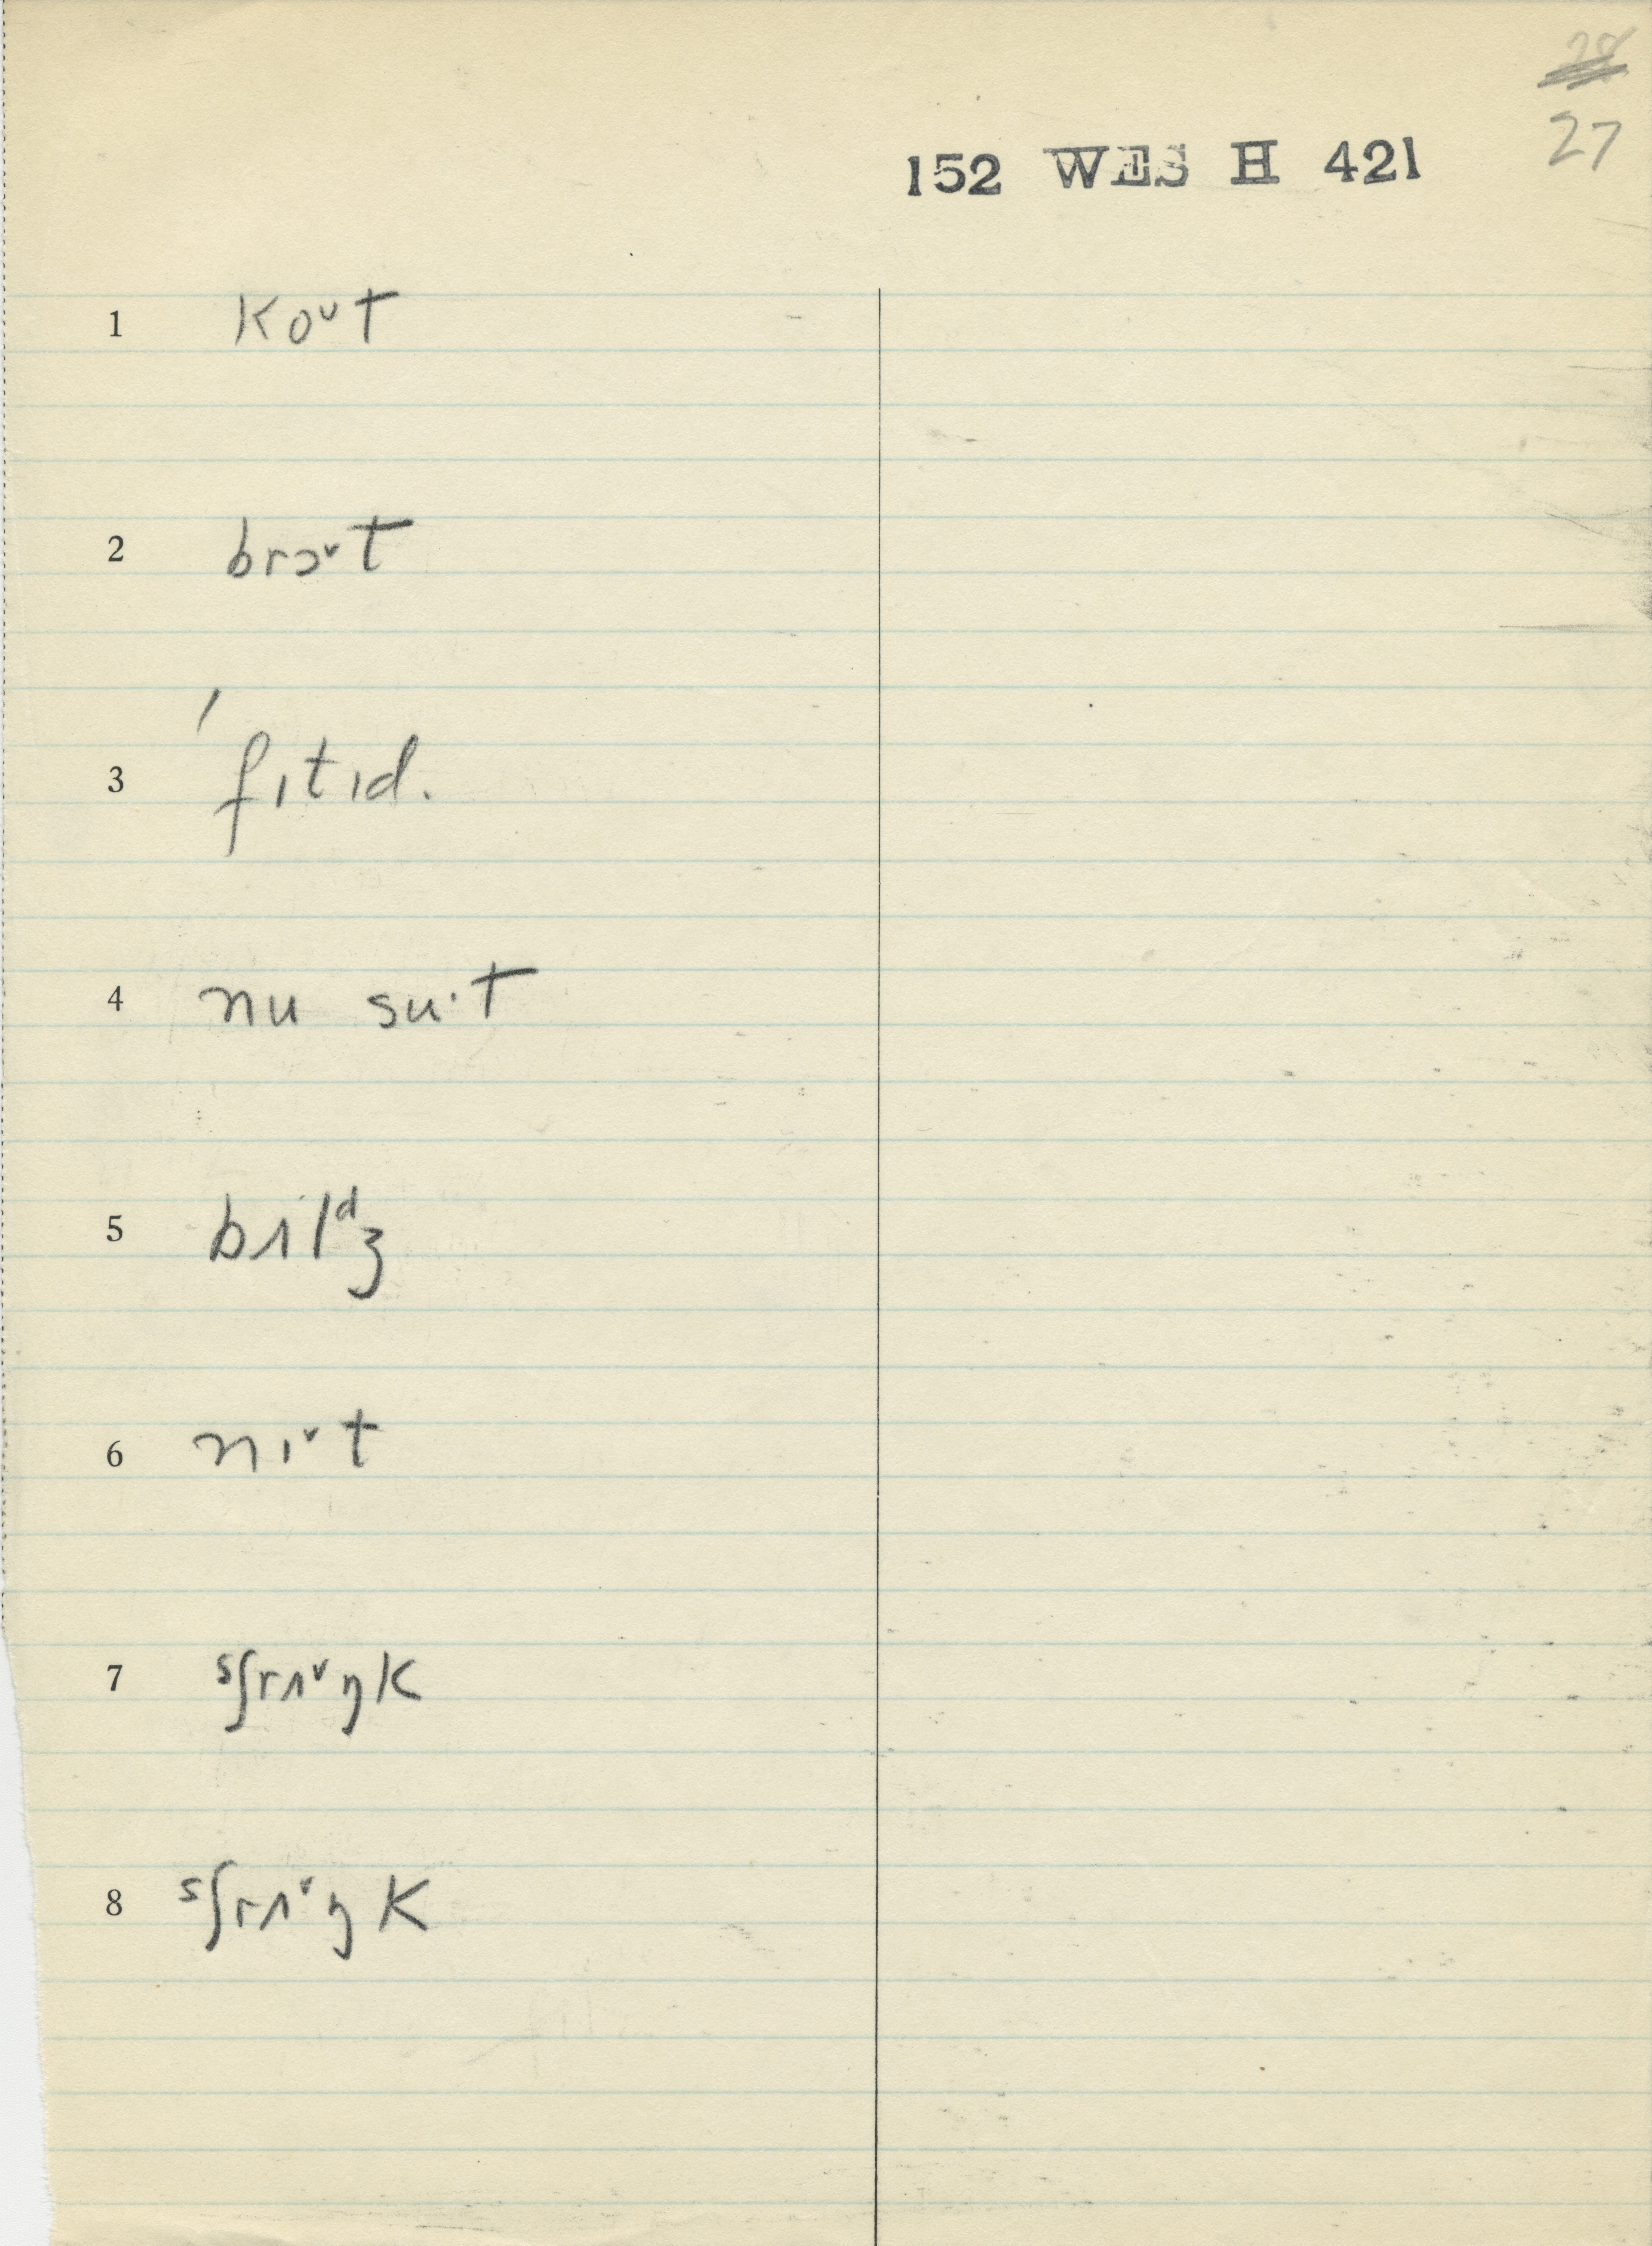 28
27
152 WES H 421
1 koᵛt
2 brɔᵛt
3 ˈfɪtɪd.
4 nu su·t
5 bɪlᵈʒ
6 nɪᵛt
7 ˢʃrʌᵛŋk
8 ˢʃrʌᵛŋk